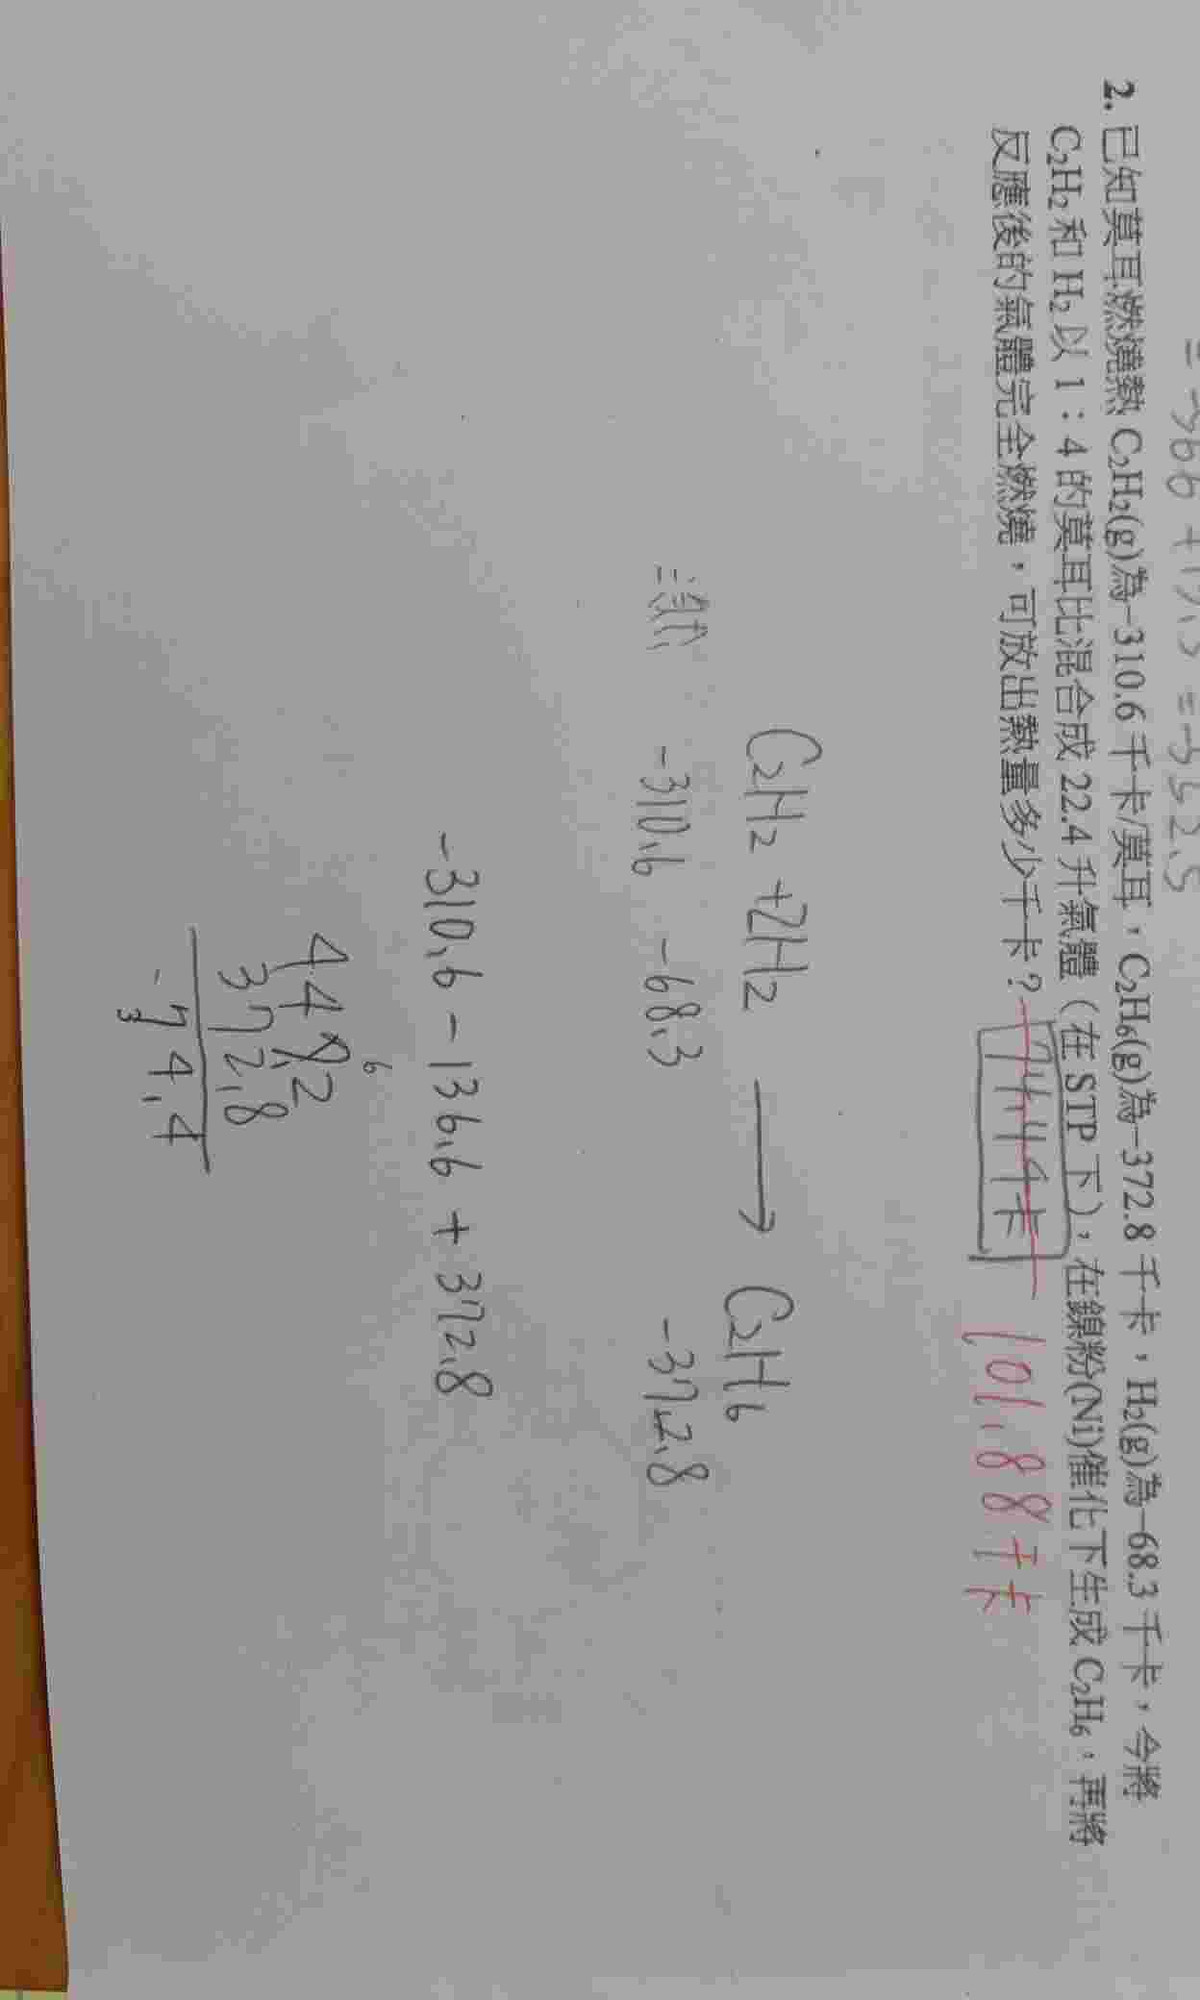 = -366 + 13.5 = -352.5
2. 已知莫耳燃燒熱 C₂H₂(g)為-310.6 千卡/莫耳，C₂H₆(g)為-372.8 千卡，H₂(g)為-68.3 千卡，今將
C₂H₂ 和 H₂ 以 1：4 的莫耳比混合成 22.4 升氣體（在 STP 下），在鎳粉(Ni)催化下生成 C₂H₆，再將
反應後的氣體完全燃燒，可放出熱量多少千卡？ 74.4千卡 101.88千卡
C₂H₂ + 2H₂ ⟶ C₂H₆
燃 -310.6 -68.3 -372.8
-310.6 - 136.6 + 372.8
6
448.2
372.8
-74.4
3